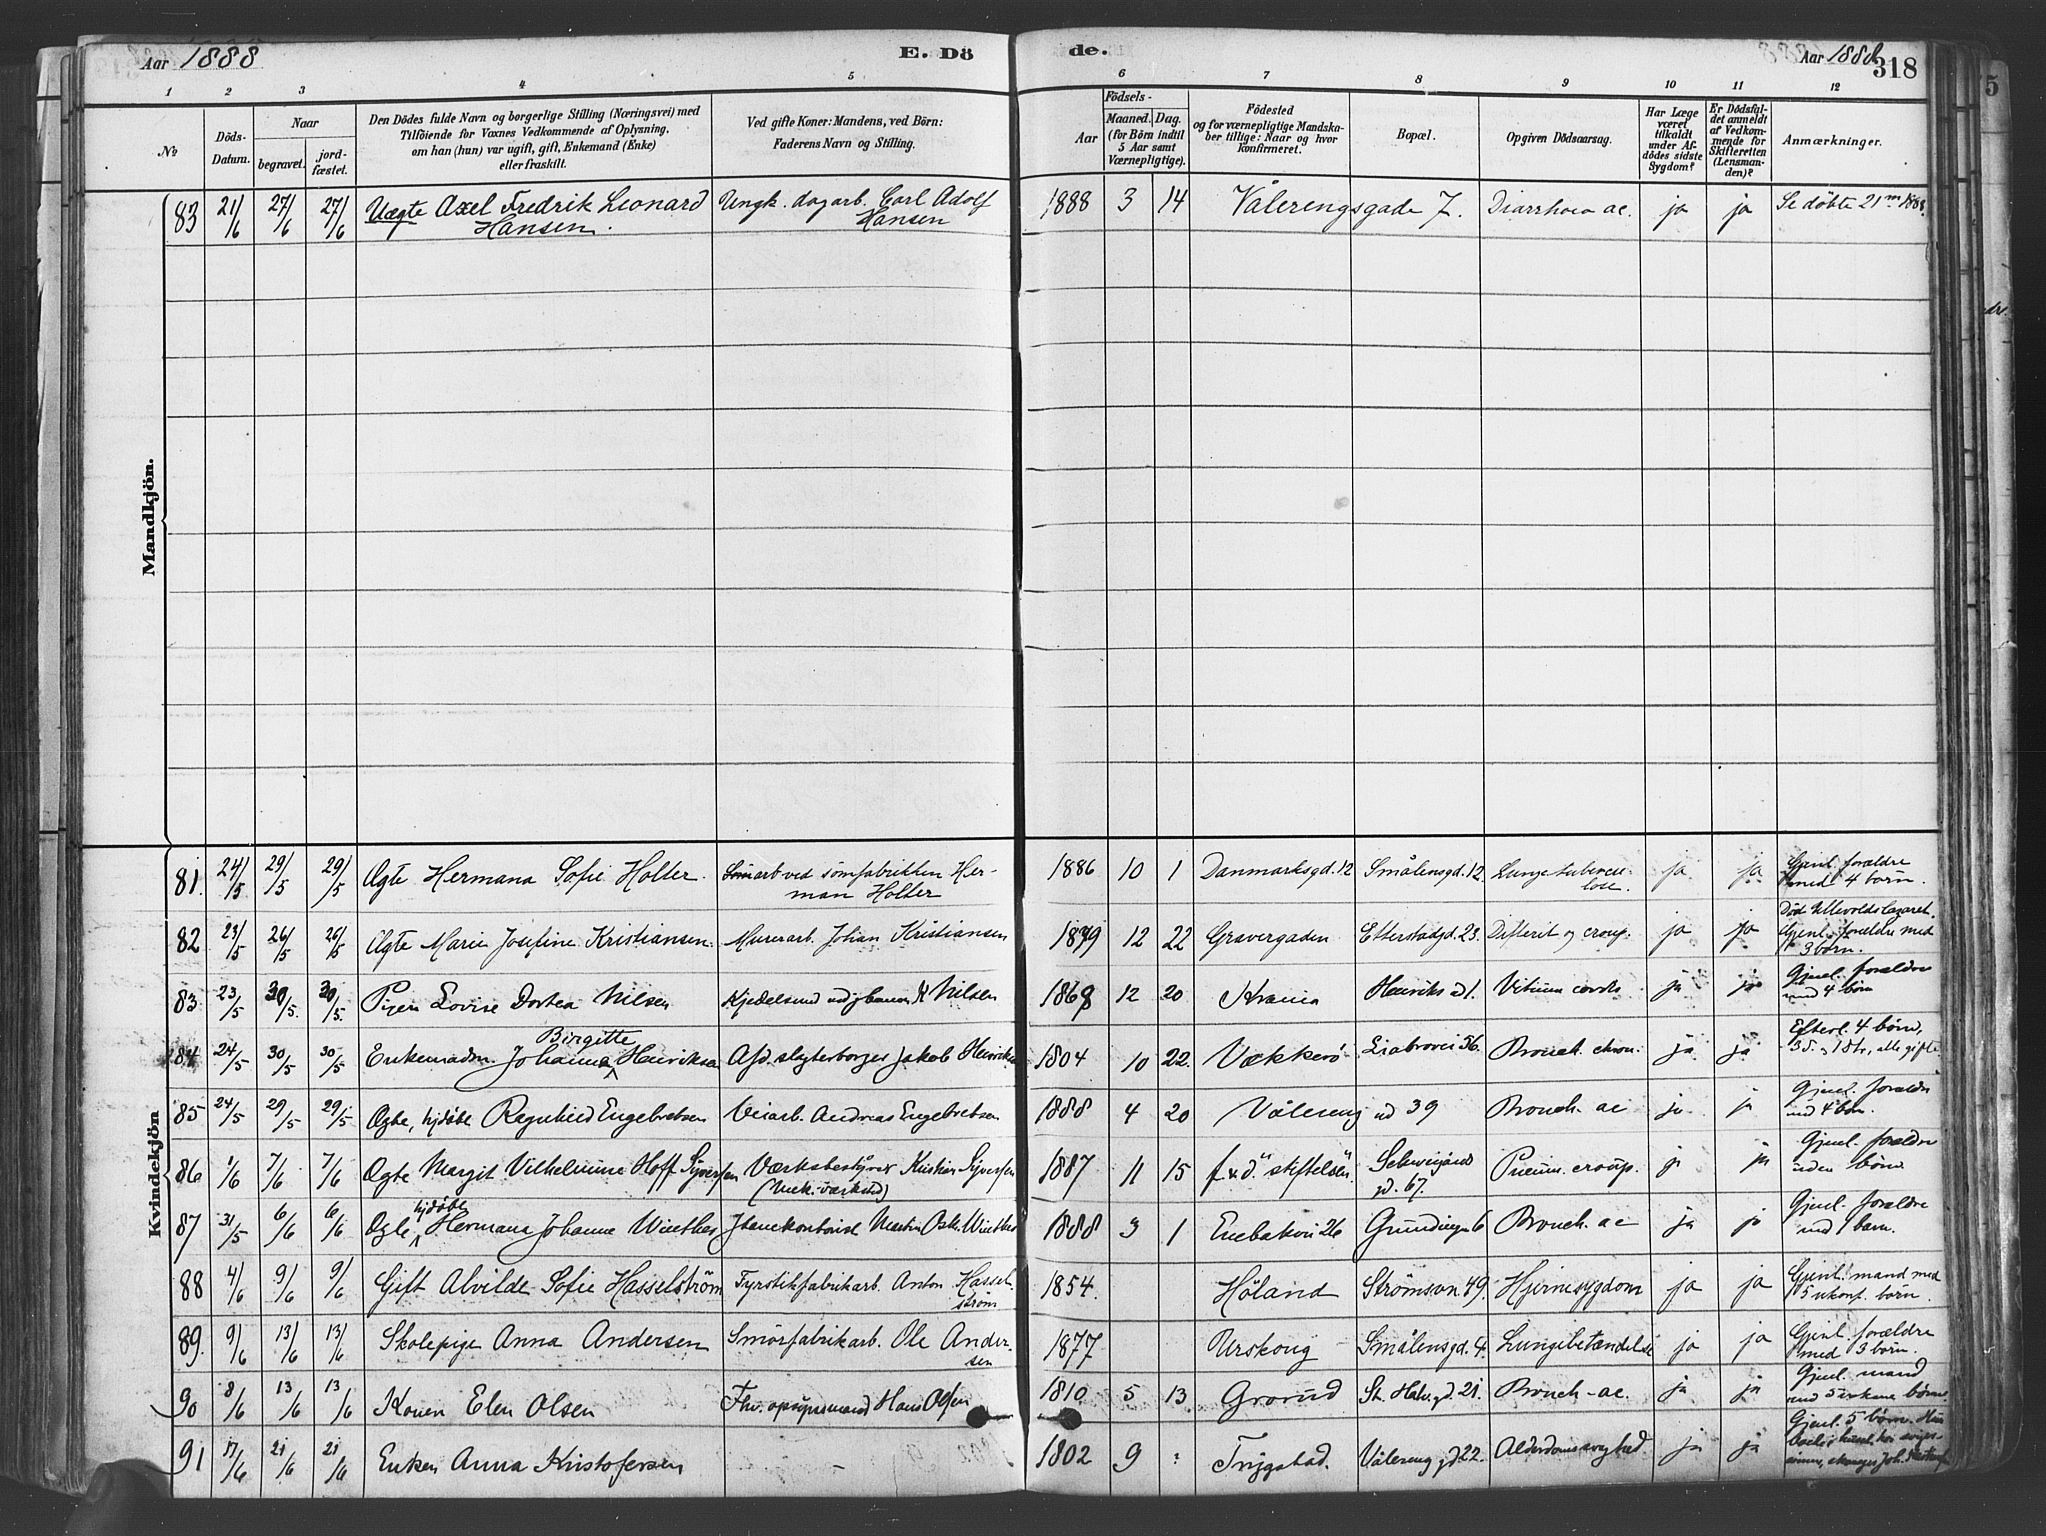 Aar 1888
E. Dö
de.
Aar 1888
318
1 2 3 4 5 6 7 8 9 10 11 12
No
Döds-Datum.
Naar
begravet.
jord-fæstet.
Den Dödes fulde Navn og borgerlige Stilling (Næringsvei) med
Tilföiende for Voxnes Vedkommende af Oplysning,
om han (hun) var ugift, gift, Enkemand (Enke)
eller fraskilt.
Ved gifte Koner: Mandens, ved Börn:
Faderens Navn og Stilling.
Födsels-
Aar
Maaned. Dag.
(for Börn indtil
5 Aar samt
Værnepligtige).
Födested
og for værnepligtige Mandska-
ber tillige: Naar og hvor
konfirmeret.
Bopæl.
Opgiven Dödsaarsag.
Har Læge
været
tilkaldt
under Af-
dödes sidste
Sygdom?
Er Dödsfal-
det anmeldt
af Vedkom-
mende for
Skifteretten
(Lensman-
den)?
Anmærkninger.
Mandkjön.
83 21/6 27/6 27/6 Uægte Axel Fredrik Leonard Hansen. Ungk. dagarb. Carl Adolf Hansen 1888 3 14 Vålerengsgade 7. Diarrhoea ac. ja ja Se døbte 21 1888.
Kvindekjön
81. 24/5 29/5 29/5 Ægte Hermana Sofie Holter. Sömarb ved sömfabrikken Her-man Holter 1886 10 1 Danmarksgd. 12 Smålensgd. 12. Lungetubercu-lose. ja ja Gjenl. forældre med 4 børn.
82 23/5 26/5 26/5 Ægte Marie Josefine Kristiansen. Murerarb. Johan Kristiansen 1879 12 22 Gravergaden Etterstadgd. 23. Difterit og croup. ja ja Død Ullevolds lazaret. Gjenl. forældre med 3 børn.
83 23/5 30/5. 30/5. Pigen Lovise Dortea Nilsen Kjedelsmed K Nilsen 1868 12 20 Krania Henriks gd 1. Vitium cordis ja ja Gjenl. forældre med 4 børn
84 24/5 30/5 30/5 Enkemadm. Johanna Birgitte Henriksen Afd. slagterborger Jakob Henriksen 1804 10 22. Vækkerø Liabrovei 56. Bronch. chron. ja ja Efterl. 4 børn, 3 S. 1 Dtr., alle gifte
85 24/5 29/5 29/5 Ægte, hjdøbt Ragnhild Engebretsen Veiarb. Andreas Engebretsen 1888 4 20 Vålereng gd 39 Bronch. ac ja ja Gjenl. forældre med 4 børn.
86 1/6 7/6 7/6 Ægte Margit Vilhelmine Hoff Syversen Værksbestyrer Kristian Syversen 1887 11 15 f. & d. "stiftelsen" Schweigaards gd. 67. Pneum. croup. ja ja Gjenl. forældre uden børn
87 31/5 6/6 6/6 Ægte hjdøbt Hermana Johanne Wiethes Jbanekontorist Martin Osk. Wiethes 1888 3 1 Enebakvei 26 Grundvegn 6 Bronch. ac ja ja Gjenl. forældre med 1 barn.
88 4/6 9/6 9/6 Gift Alvilde Sofie Hasselström Fyrstikfabrikarb. Anton Hassel-ström 1854. Höland Strömsvn. 49. Hjernesygdom ja ja Gjenl. mand med 5 ukonf. børn.
89. 9/6 13/6 13/6 Skolepige Anna Andersen Smörfabrikarb. Ole Ander-sen 1877 Urskoug Smålensgd. 4. Lungebetændelse ja ja Gjenl. forældre med 3 børn.
90 8/6 13/6 13/6 Konen Elen Olsen Fhv. opsynsmand Hans Olsen 1810 5 13 Grorud St. Halv. gd. 21. Bronch. ac. ja ja Gjenl. mand med 5 voksne børn
91 17/6 21/6 21/6 Enken Anna Kristofersen - 1802 9 : Trygstad. Vålereng gd 22. Alderdomssvaghed ja ja Gjenl. 5 børn.